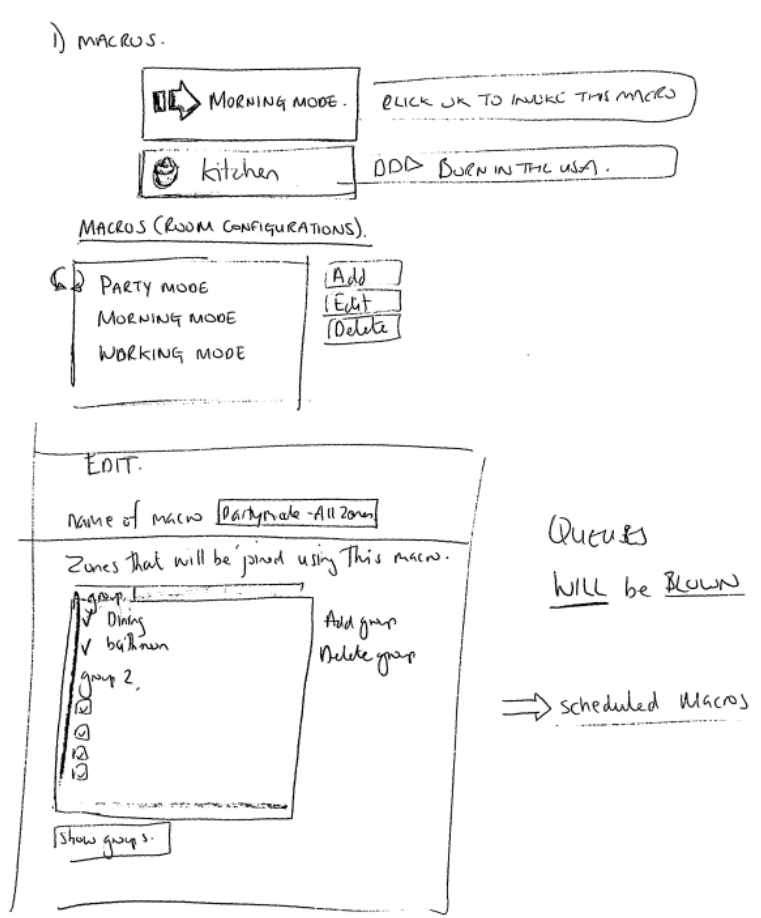 1) MACROS.
MORNING MODE.
CLICK OK TO INVOKE THIS MACRO
kitchen
BORN IN THE USA.
MACROS (ROOM CONFIGURATIONS).
PARTY MODE
MORNING MODE
WORKING MODE
Add
Edit
Delete
EDIT.
Name of macro Partymode - All Zones
Zones that will be joined using this macro.
group 1
Dining
bathroom
group 2.
Add group
Delete group
Show groups.
QUEUES
WILL be BLOWN
scheduled Macros